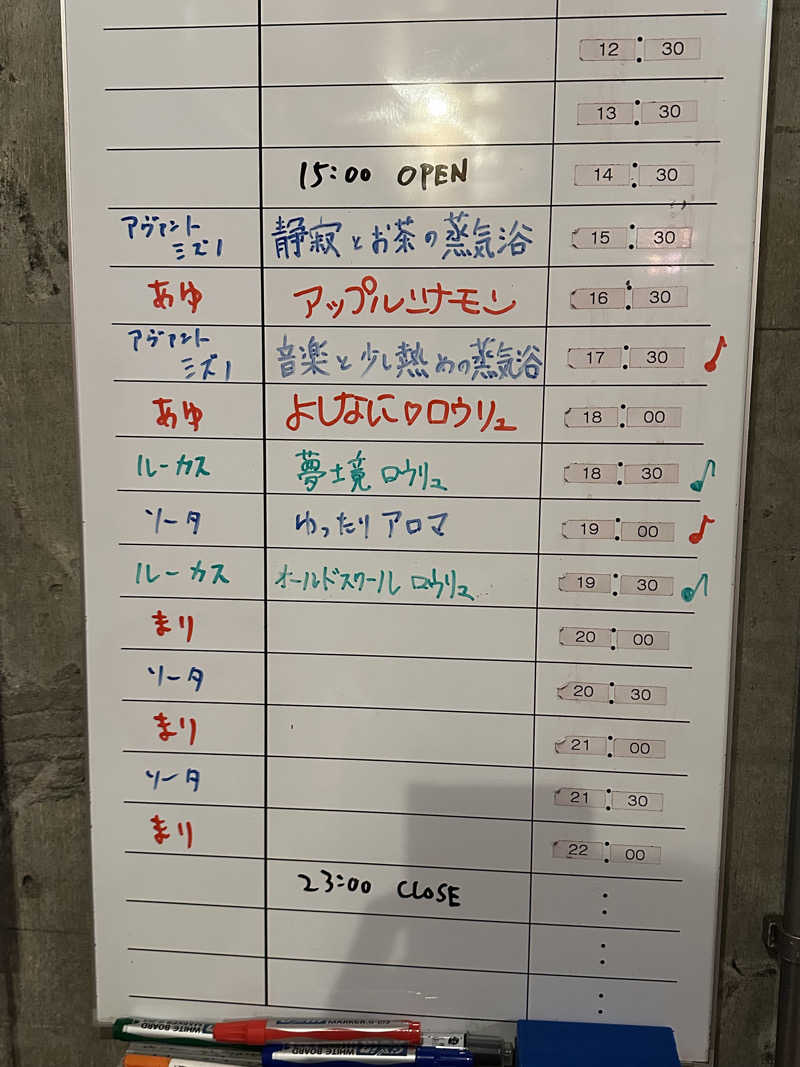 12:30
13:30
15:00 OPEN 14:30
アヴァント
ミズノ 静寂とお茶の蒸気浴 15:30
あゆ アップルシナモン 16:30
アヴァント
ミズノ 音楽と少し熱めの蒸気浴 17:30
あゆ よしなに♡ロウリュ 18:00
ルーカス 夢士竟 ロウリュ 18:30
ソータ ゆったりアロマ 19:00
ルーカス オールドスクール ロウリュ 19:30
まり 20:00
ソータ 20:30
まり 21:00
ソータ 21:30
まり 22:00
23:00 CLOSE :
:
:
WHITE BOARD
WHITE BOARD